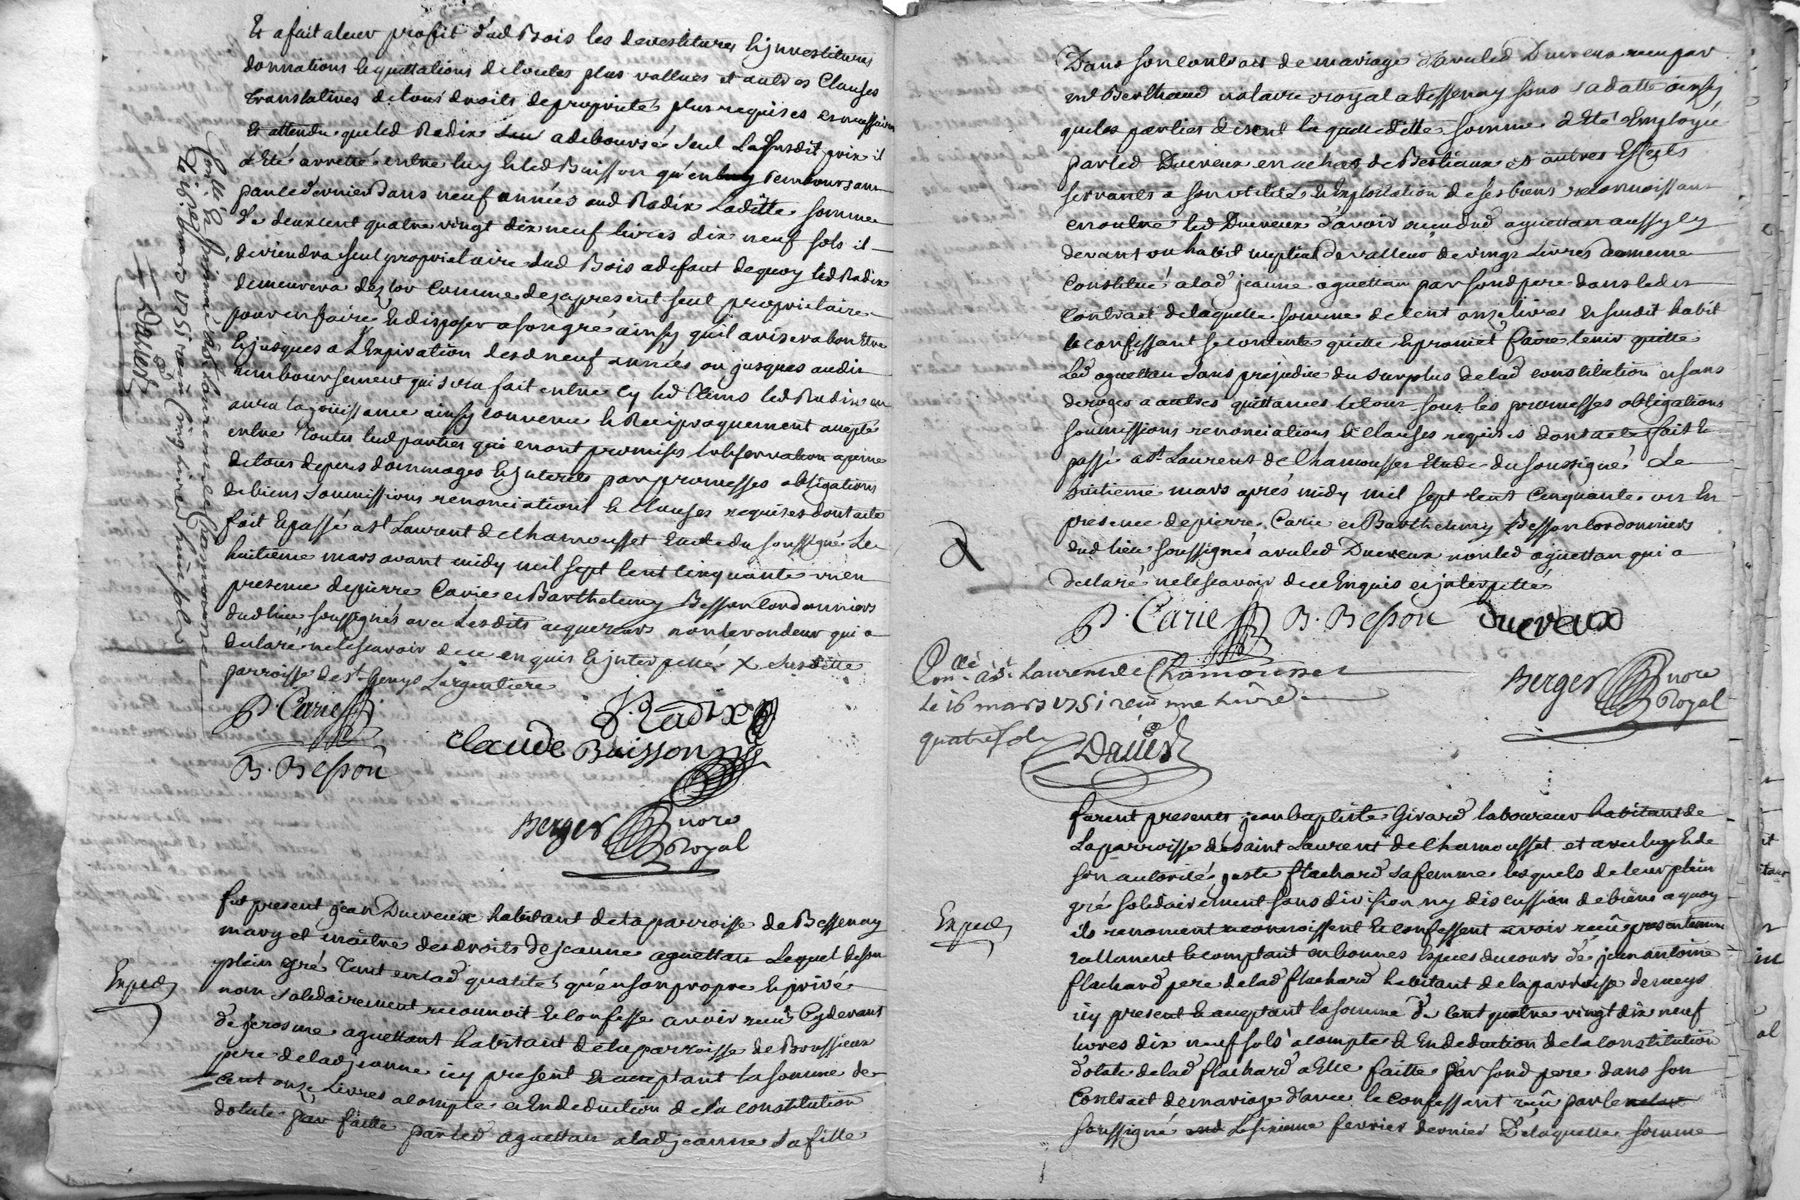 Et a fait a leur profit dud Bois les devestitures Et jnvestitures
donnations Et quittations de toutes plus vallues et autres Clauses
translatives de tous droits de proprieté plus requises et necessaires
Et attendu que led Radix a debourcé seul la susdit prix il
a Eté arretté entre luy Et led Buisson qu'en remboursant
par ce dernier dans neuf années aud Radix Laditte somme
de deux cent quatre vingt dix neuf livres dix neuf sols il
deviendra seul propriétaire dud Bois a defaut de quoy led Radix
demeurera dez lor comme dez a present seul propriétaire
pour en faire Et disposer a son gré ainsy qu'il avisera bon Etre
Et jusques a L'Expiration desd neuf années ou jusques audit
remboursement qui sera fait entre cy led tems led Radix en
aura la joüissance ainsy convenu Et Reciproquement accepté
entre toutes lesd parties qui en ont promises l'observation a peine
de tous depens dommages Et jnterets par promesses obligations
de biens soumissions renonciations Et clauses requises dont acte
fait Et passé a st Laurent de Chamousset Etude du soussigné Le
huitieme mars avant midy mil sept cent cinquante un en
presence de pierre Carie et Barthelemy Besson Cordonniers
dud lieu soussignés avec Lesdits acquereurs non le vendeur qui a
declaré ne le scavoir de ce enquis Et jnterpellé x
parroisse de st Genys Largentiere
P. Carie
J. Radix
Claude Buisson
B. Besson
Berger nore
Royal
Daviet
fut present jean Ducreux habitant de la parroisse de Bessenay
mary et maître des droits de jeanne aguettan Lequel de son
plein gré tant en lad qualité qu'en son propre Et privé
Exped
nom solidairement reconnoit Et confesse avoir reçû Cy devant
de jerosme aguettant habitant de la parroisse de Broussieux
pere de lad jeanne icy present Et acceptant la somme de
Cent onze Livres a compte et En deduction de la constitution
dotale faitte par led aguettan a lad jeanne sa fille
Dans son contrat de mariage d'avec led Ducreux recu par
me Berthaud notaire royal a Bessenay sous sa datte ainsy
que les parties disent laquelle ditte somme a Eté Employé
par led Ducreux en achat de Bestiaux et autres Effets
servants a son utilité Et Exploitation de ses biens reconnoissant
en outre led Ducreux d'avoir reçu dud aguettan aussy cy
devant un habit nuptial de valleur de vingt Livres
Constitué a lad jeanne aguettan par sond pere dans led
Contrat de laquelle somme de cent onze livres Et susdit habit
le confessant se contente quitte Et promet faire tenir quitte
Led aguettan sans prejudice du surplus de lad constitution et sans
deroger a autres quittances le tout sous les promesses obligations
soumissions renonciations Et clauses requises dont acte fait Et
passé a st Laurent de Chamousset Etude du soussigné Le
huitieme mars aprés midy mil sept cent cinquante un En
presence de pierre Carie et Barthelemy Besson Cordonniers
dud lieu soussignés avec led Ducreux non led aguettan qui a
declaré ne le scavoir de ce Enquis et jnterpellé
P. Carie B. Besson Ducreux
Conllé à st Laurent de Chamousset
Le 16 mars 1751 reçu une livre
quatre sols
Daviet
Berger nore
Royal
furent presents jean baptiste Girard laboureur habitant de
La parroisse de saint Laurent de Chamousset et avec luy Et de
son autorité flachard sa femme lesquels de leur plein
gré solidairement sans division ny discussion de biens a quoy
Exped
ils renoncent reconnoissent Et confessent avoir reçû presentement
reellement Et comptant en bonnes Especes du cours de jean antoine
flachard pere de lad flachard habitant de la parroisse de meys
icy present Et acceptant la somme de cent quatre vingt dix neuf
livres dix neuf sols a compte Et En deduction de la constitution
dotale de lad flachard a Elle faitte par sond pere dans son
Contrat de mariage d'avec le confessant reçû par le
soussigné Le sixieme fevrier dernier de laquelle somme